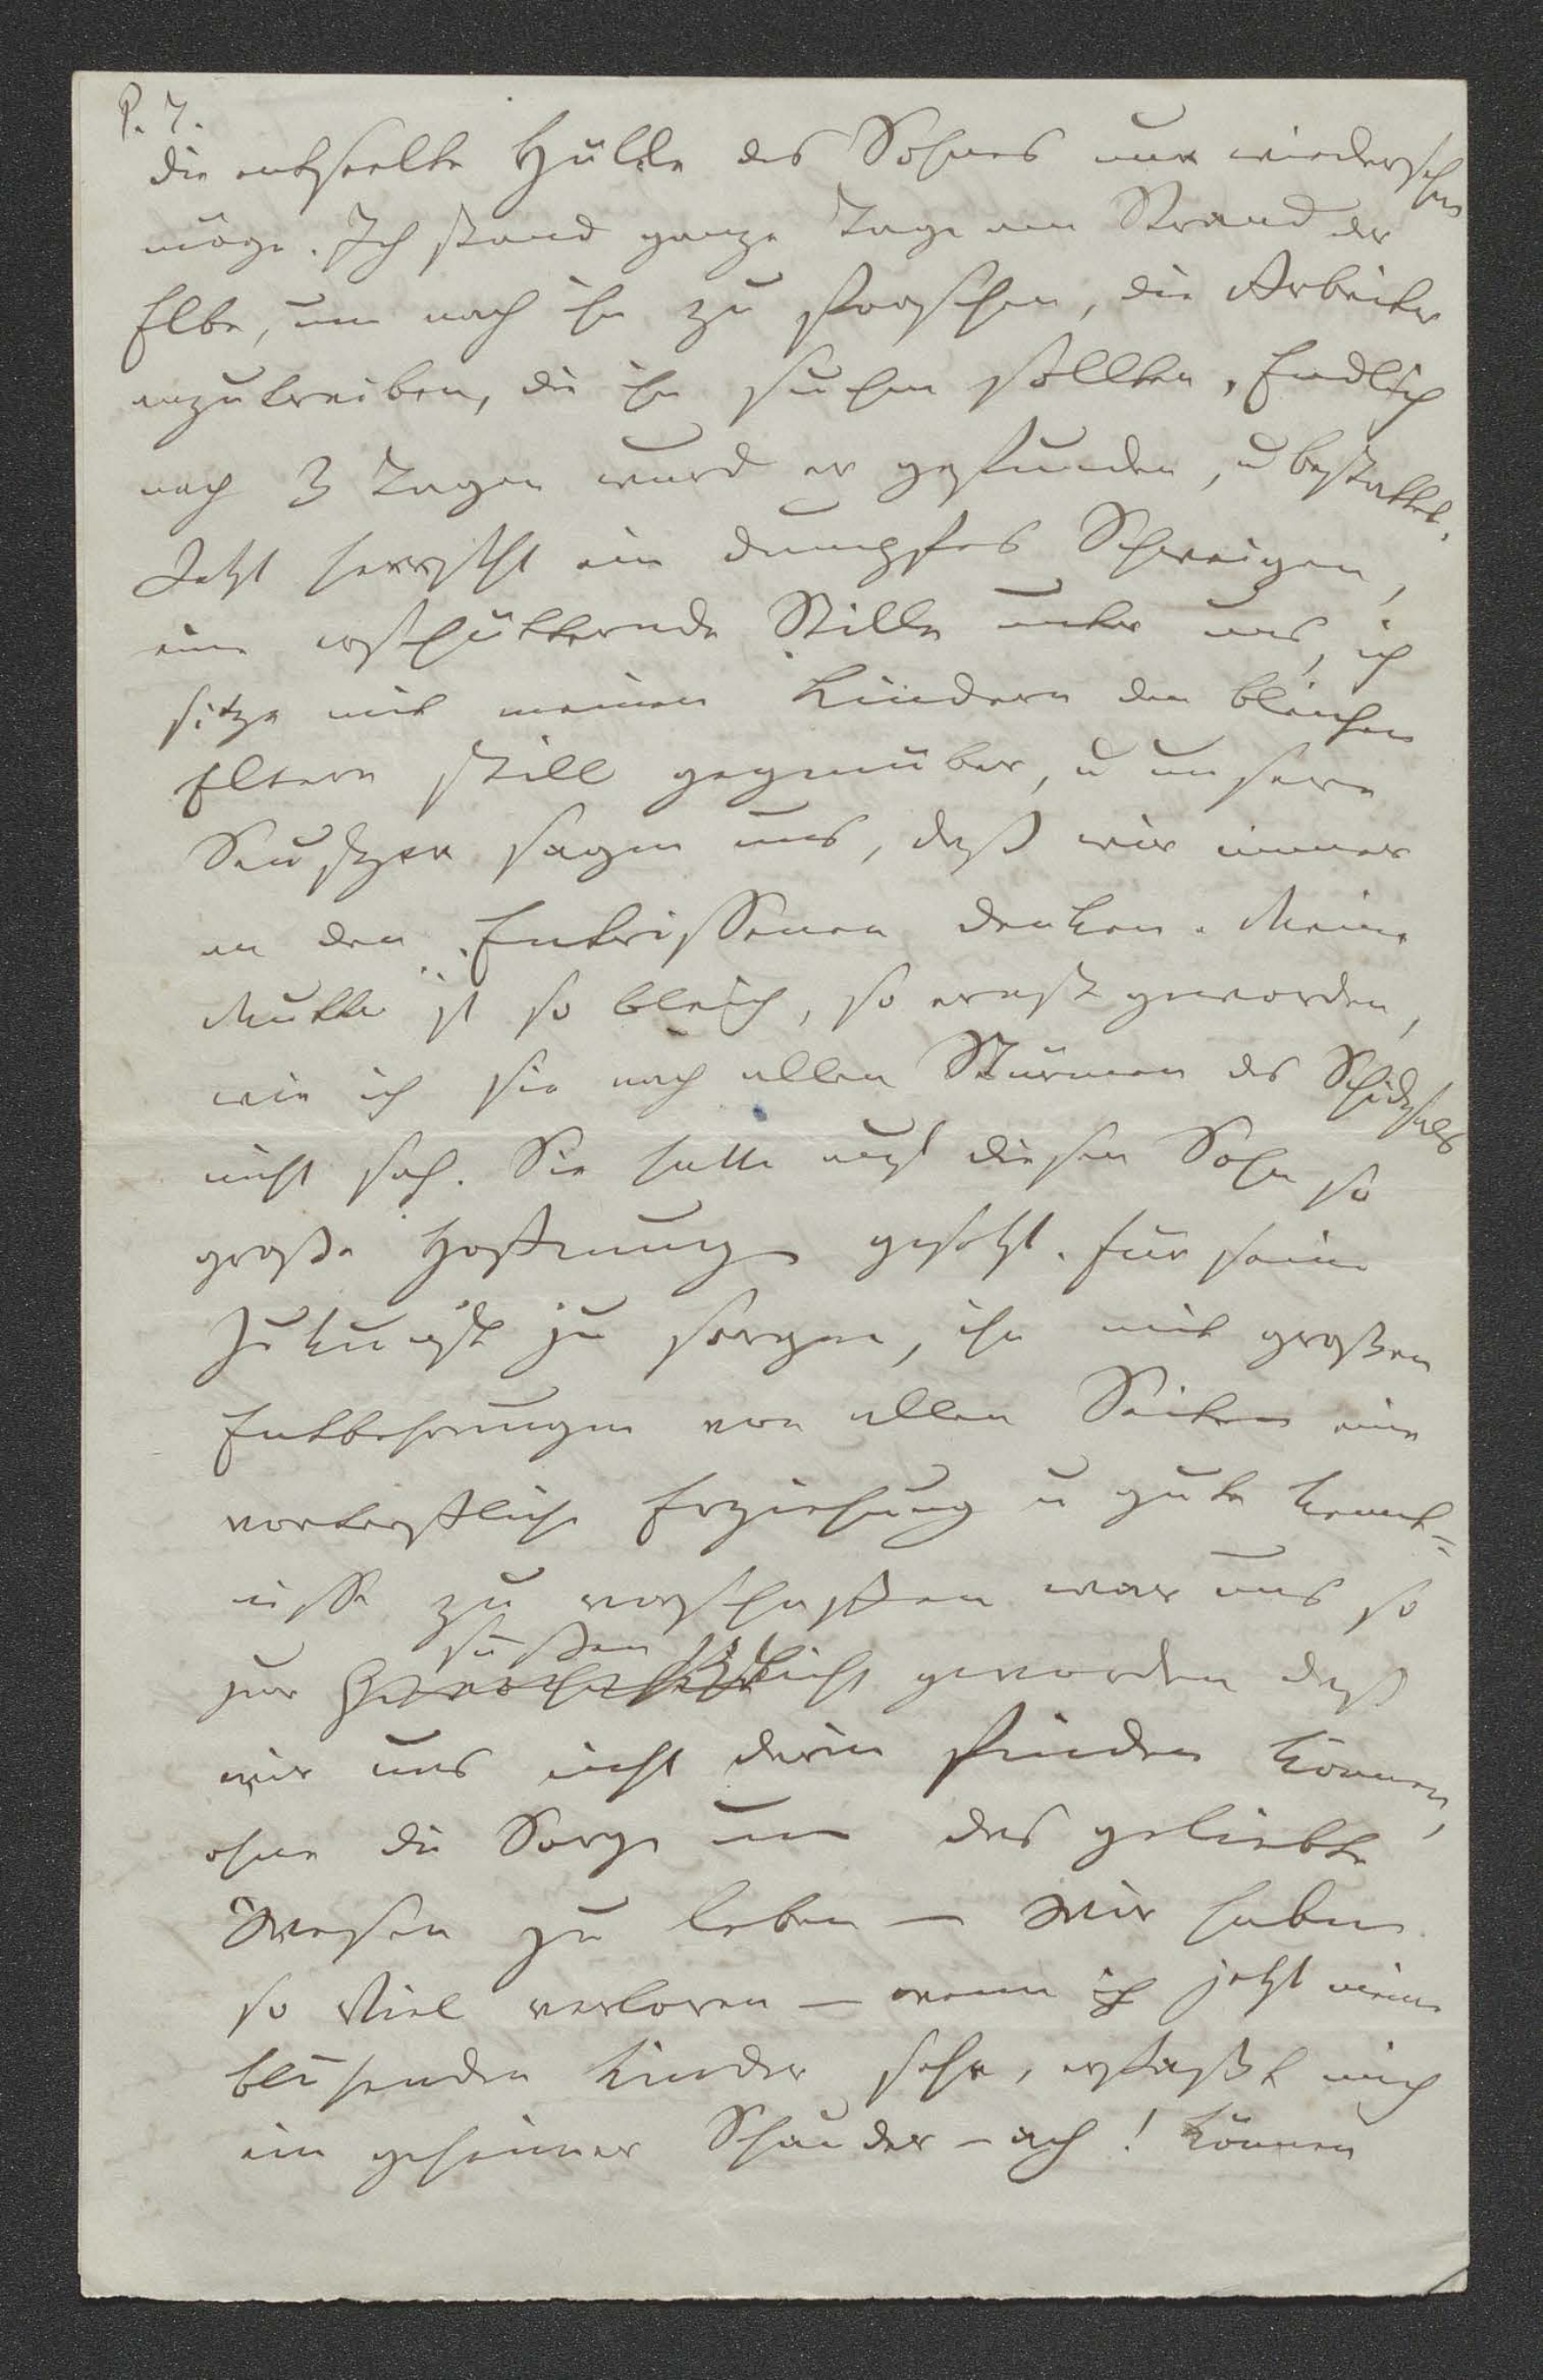 P. 7.
die entseelte Hülle des Sohnes nur wiedersehn
möge. Ich stand ganze Tage am Strand der
Elbe, um nach ihn zu forschen, die Arbeiter
anzutreiben, die ihn suchen sollten, Endlich
nach 3 Tagen wurd er gefunden, u bestattet.
Jetzt herrscht ein dumpfes Schweigen,
eine erschütternde Stille unter uns, ich
sitze mit meinen Kindern den bleichen
Eltern still gegenüber, u unsere
Seufzer sagen uns, daß wir immer
an den Entrissenen denken. Meine
Mutter ist so bleich, so ernst geworden,
wie ich sie nach allen Stürmen des Schicksals
nicht sah. Sie hatte auf diesen Sohn so
große Hoffnung gesetzt. Für seine
Zukunft zu sorgen, ihn mit großen
Entbehrungen von allen Seiten eine
vortreffliche Erziehung u gute Kennt-
nisse zu verschaffen war uns so
süßen Pflicht
zur geworden daß
wir uns nicht darin finden können,
ohne die Sorge um das geliebte
Wesen zu leben — Wir haben
so Viel verloren — wenn ich jetzt meine
blühenden Kinder sehe, erfaßt mich
ein geheimer Schauder – ach! können